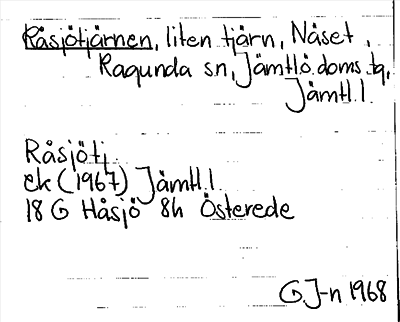 Råsjötjärnen, liten tjärn, Näset,
Ragunda sn, Jämtl.ö. doms. tg,
Jämtl. l.
Råsjötj.
ek (1967) Jämtl. l.
18 G Håsjö 8h Österede
G J-n 1968